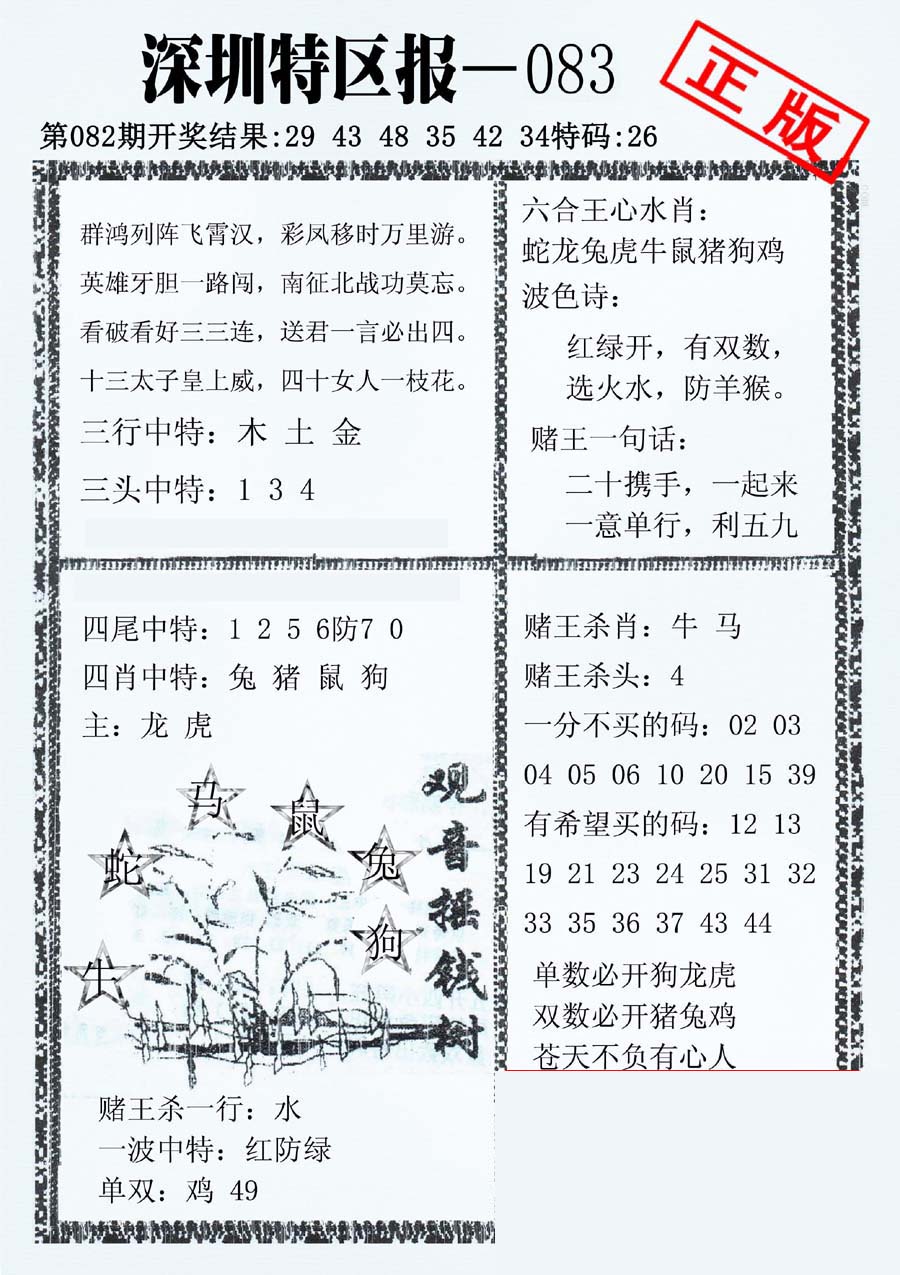 深圳特区报—083
正版
第082期开奖结果:29 43 48 35 42 34特码:26
群鸿列阵飞霄汉，彩凤移时万里游。
英雄牙胆一路闯，南征北战功莫忘。
看破看好三三连，送君一言必出四。
十三太子皇上威，四十女人一枝花。
三行中特：木 土 金
三头中特：1 3 4
六合王心水肖：
蛇龙兔虎牛鼠猪狗鸡
波色诗：
红绿开，有双数，
选火水，防羊猴。
赌王一句话：
二十携手，一起来
一意单行，利五九
四尾中特：1 2 5 6防7 0
四肖中特：兔 猪 鼠 狗
主：龙 虎
马
鼠
蛇
兔
狗
牛
观音摇钱树
赌王杀一行：水
一波中特：红防绿
单双：鸡 49
赌王杀肖：牛 马
赌王杀头：4
一分不买的码：02 03
04 05 06 10 20 15 39
有希望买的码：12 13
19 21 23 24 25 31 32
33 35 36 37 43 44
单数必开狗龙虎
双数必开猪兔鸡
苍天不负有心人